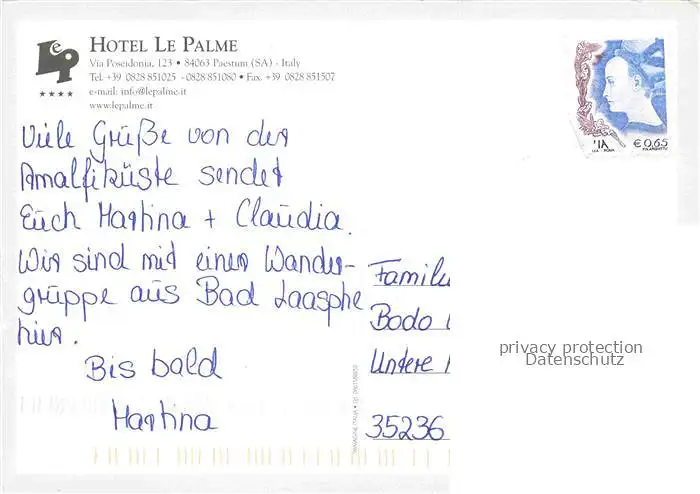 HOTEL LE PALME
Via Poseidonia, 123 • 84063 Paestum (SA) - Italy
Tel. +39 0828 851025 - 0828 851080 • Fax. +39 0828 851507
e-mail: info@lepalme.it
www.lepalme.it
€ 0,65
Viele Grüße von der
Amalfiküste sendet
Euch Martina + Claudia.
Wir sind mit einer Wander-
gruppe aus Bad Laasphe
hier.
Bis bald
Martina
Bodo
Untere
35236
privacy protection
Datenschutz